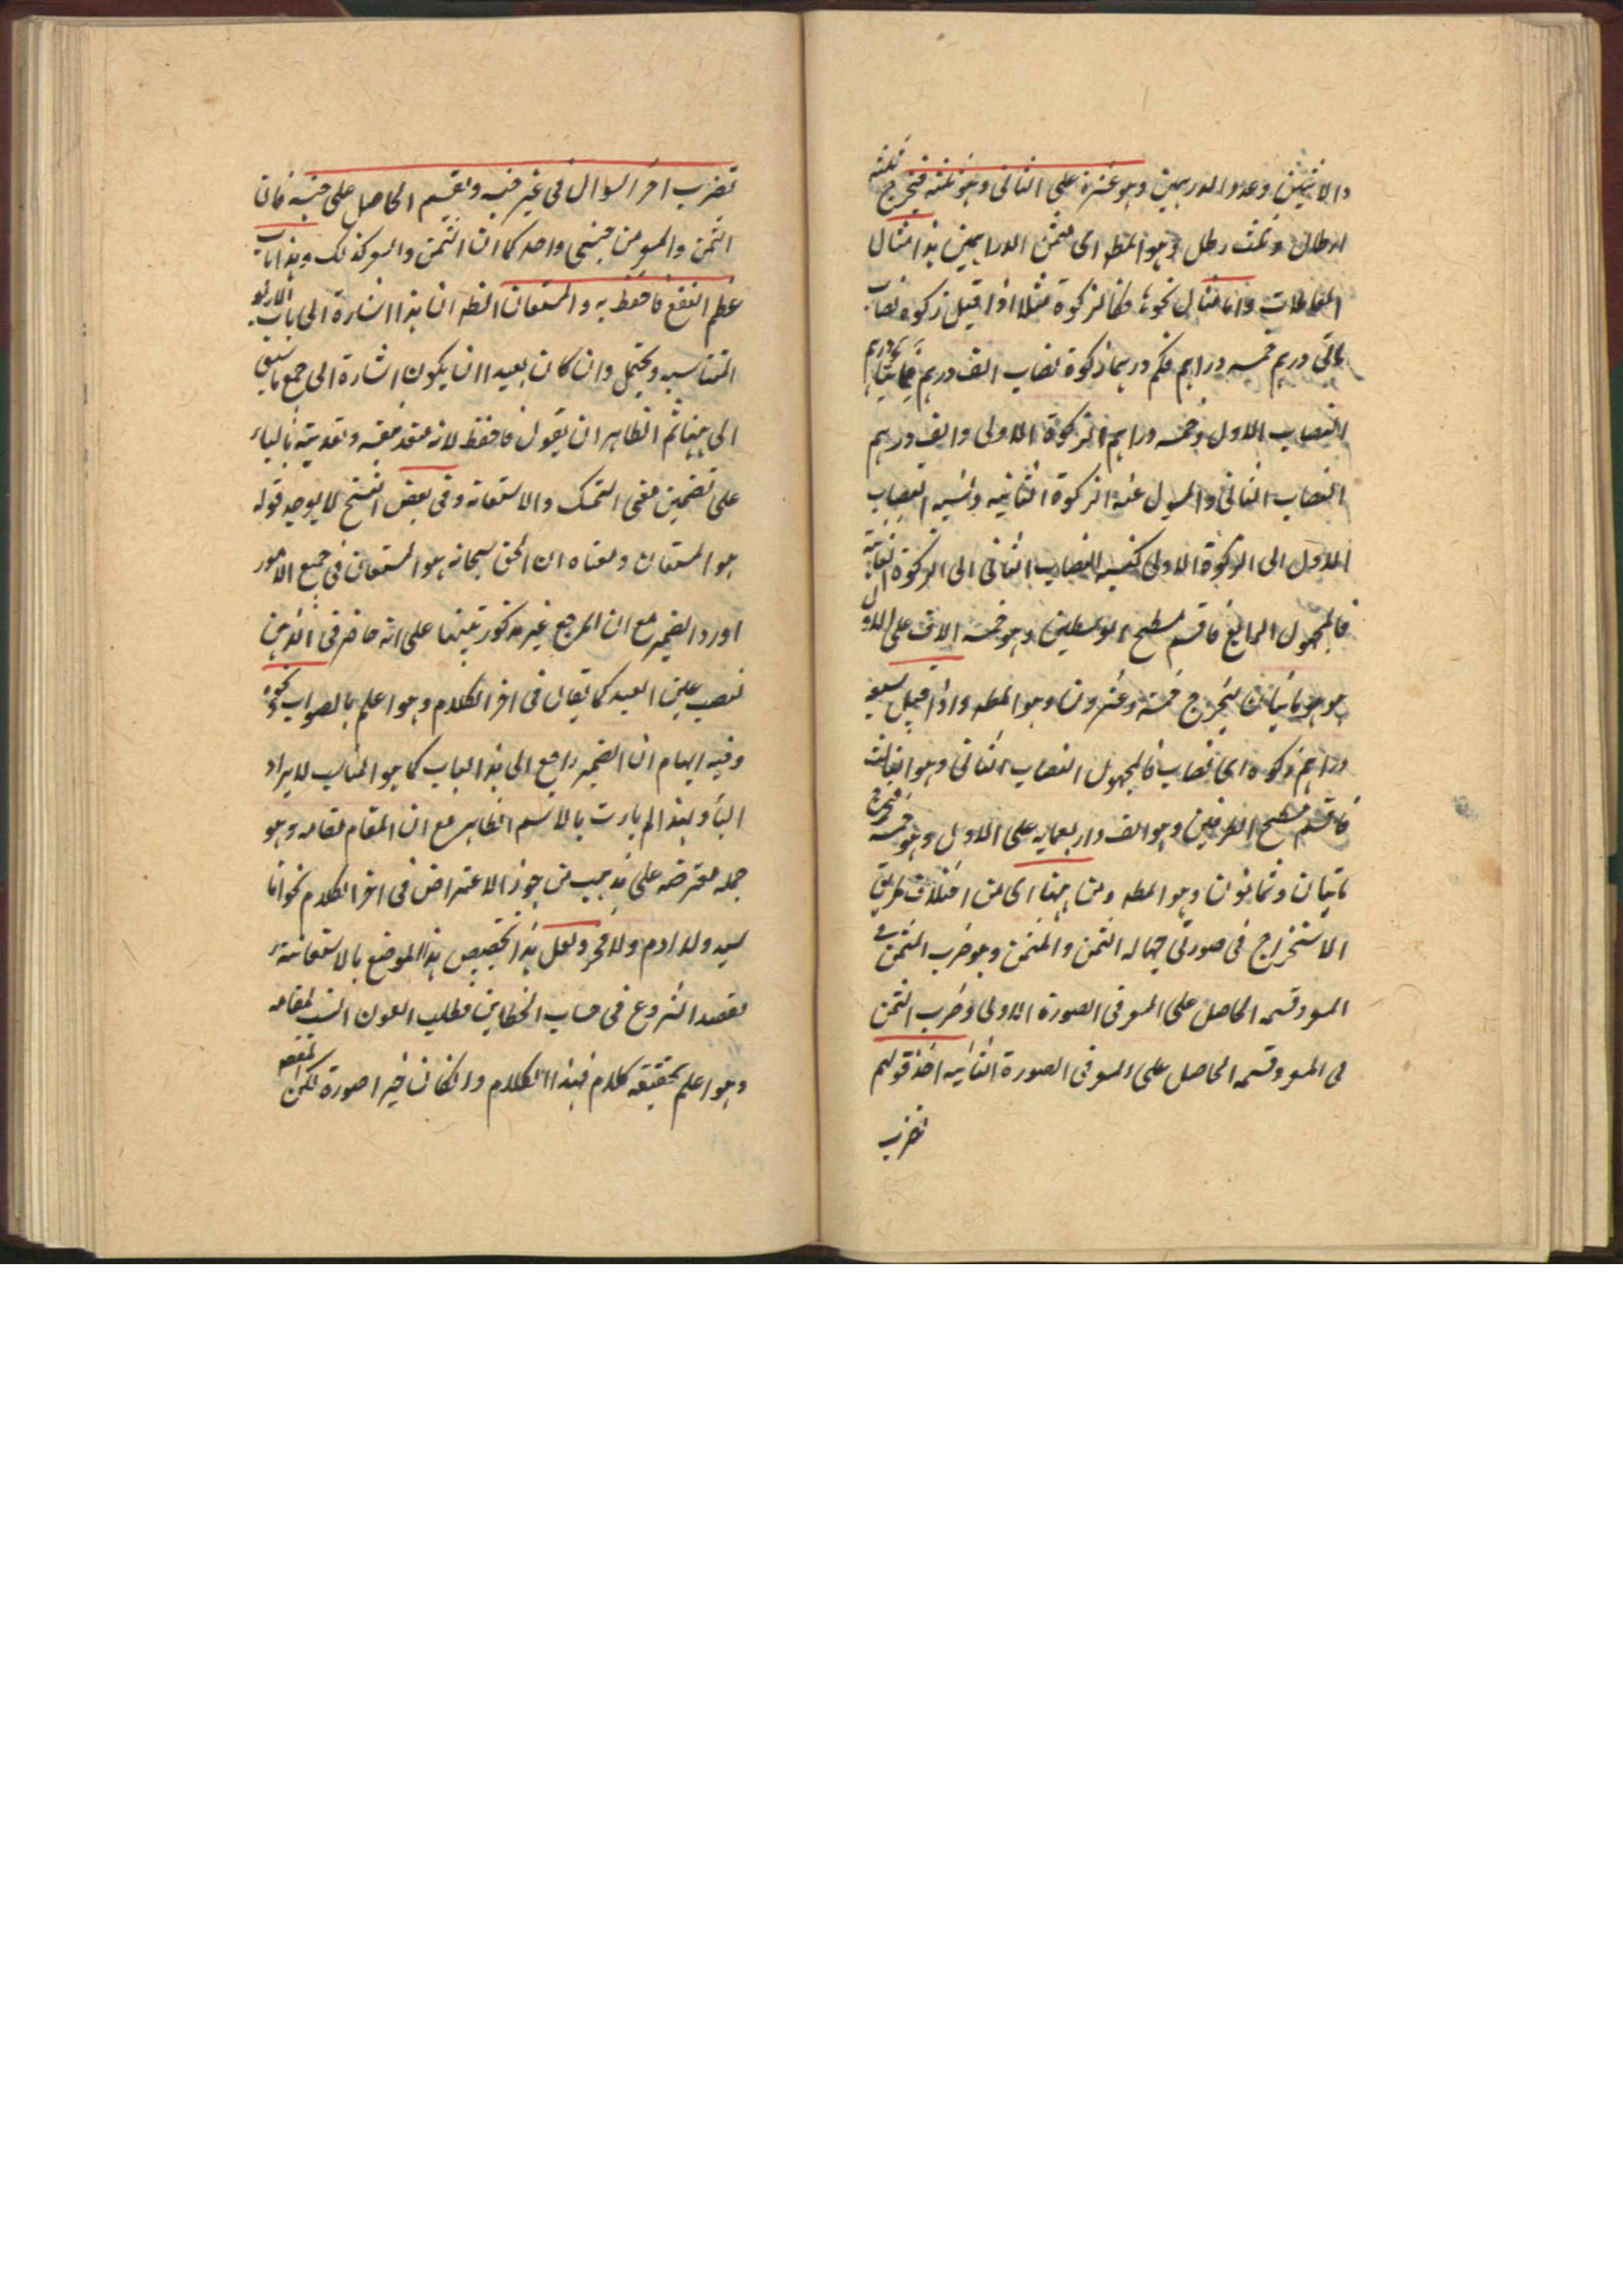 والاثنين وعدد الدرهمين وهو عشرة على الثانى وهو ثلثه فيخرج ثلثه
ارطال وثلث رطل وهو المط اى مثمن الدراهمين هذا مثال
المعاملات واما مثال نحوها فكالزكوة مثلا اذا قيل زكوة نصاب
مائتى درهم خمسه دراهم فكم درهما زكوة نصاب الف درهم فمائتا درهم
النصاب الاول وخمسه دراهم الزكوة الاولى والف درهم
النصاب الثانى والمسول عنه الزكوة الثانيه ونسبه النصاب
الاول الى الزكوة الاولى كنسبه النصاب الثانى الى الزكوة الثانية
فالمجهول الرابع فاقسم مسطح الوسطين وهو خمسه الاف على الاول
هو مائتان يخرج خمسة وعشرون وهو المط واذا قيل سبعه
دراهم زكوة اى نصاب فالمجهول النصاب الثانى وهو الثالث
فاقسم مسطح الطرفين وهو الف واربعمايه على الاول وهو خمسه فيخرج
مائتان وثمانون وهو المط ومن ههنا اى من اختلاف طريق
الاستخراج فى صورتى جهاله الثمن والمثمن وهو ضرب المثمن فى
السعر وقسمه الحاصل على المسعر فى الصورة الاولى وضرب الثمن
فى المسعر وقسمه الحاصل على السعر فى الصورة الثانيه اخذ قولهم
تضرب
تضرب اخر السوال فى غير جنسه وتقسم الحاصل على جنسه فان
الثمن والسعر من جنس واحد كما ان المثمن والمسعر كذلك وهذا باب
عظيم النفع فاحتفظ به والمستعان الظ ان هذا اشارة الى باب الاربعة
المتناسبه ويحتمل وان كان بعيدا ان يكون اشارة الى جمع ما سبق
الى ههنا ثم الظاهر ان يقول فاحتفظ لانه متعد بنفسه وتعديته بالباء
على تضمين معنى التمسك والاستعانه وفى بعض النسخ لا يوجد قوله
هو المستعان ومعناه ان الحق سبحانه هو المستعان فى جميع الامور
اورد الضمير مع ان المرجع غير مذكور تنبيها على انه حاضر فى الذهن
نصب عين العبد كما يقال فى اخر الكلام وهو اعلم بالصواب ونحوه
وفيه ايهام ان الضمير راجع الى هذا الباب كما هو المناسب للايراد
ولهذا لم يات بالاسم الظاهر مع ان المقام مقامه وهو
جمله معترضه على مذهب من جوز الاعتراض فى اخر الكلام نحو انا
سيد ولد ادم ولا فخر ولعل هذا تخصيص هذا الموضع بالاستعانة
بقصد الشروع فى حساب الخطاين فطلب العون انسب لمقامه
وهو اعلم بحقيقه كلامه فهذا الكلام وان كان خبرا صورة لكن المقصد